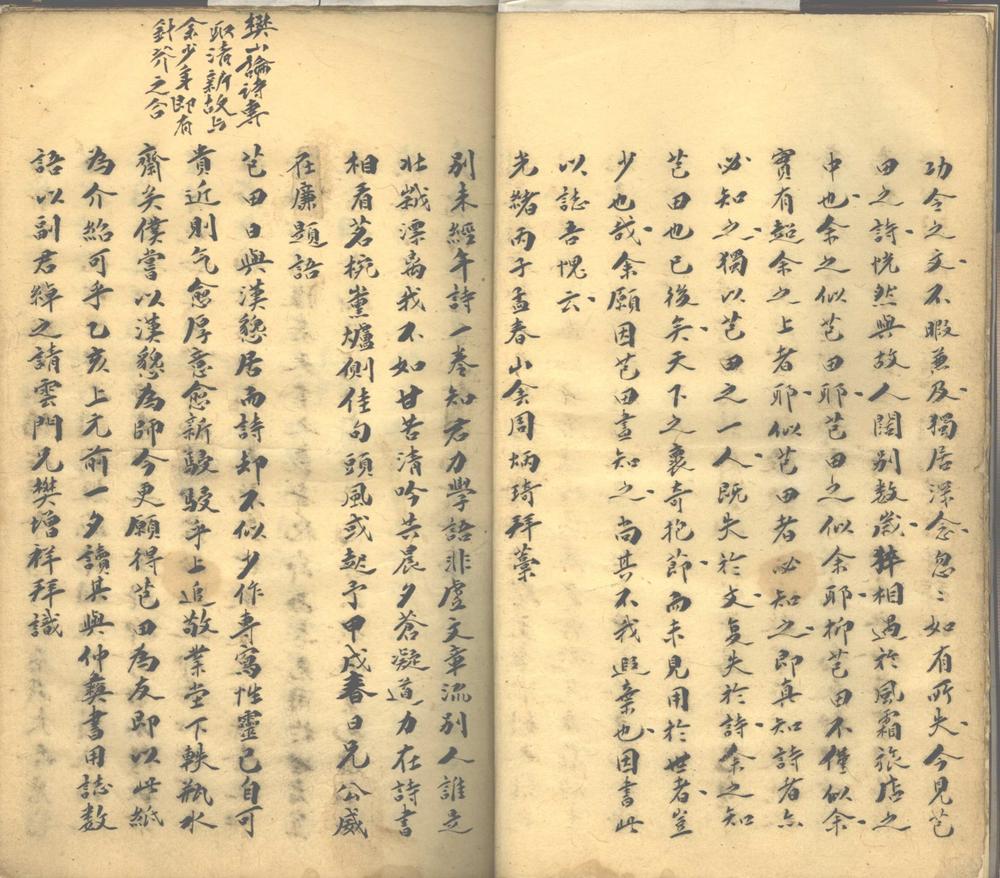 功令之文不暇兼及獨居深念忽〻如有所失今見芑
田之詩恍然與故人闊別数歲猝相遇於風霜旅店之
中也余之似芑田耶芑田之似余耶抑芑田不僅似余
實有超余之上者耶似芑田者必知之即真知詩者亦
必知之獨以芑田之一人既失於文复失於詩余之知
芑田也已後矣天下之裹奇抱節而未見用於世者豈
少也哉余願因芑田盡知之尚其不我遐棄也因書此
以誌吾愧云
光緒丙子孟春山舍周炳琦拜藁
別未經年詩一卷知君力學語非虛文章流別人誰立
壯嵗漂禽我不如甘苦清吟共晨夕蒼凝道力在詩書
相看茗椀薰爐側佳句頭風或起予甲戌春日兄公威
在廉題語
芑田日與漢懇居而詩却不似少作專寫性靈已自可
貴近則气愈厚意愈新駸駸乎上追敬業堂下軼瓶水
齋矣僕嘗以漢懇為師今更願得芑田為友即以此紙
為介紹可乎乙亥上元前一夕讀其與仲彝書用誌数
語以副君綽之請雲門兄樊增祥拜識
樊山論詩專
取清新故与
余少年即有
針芥之合